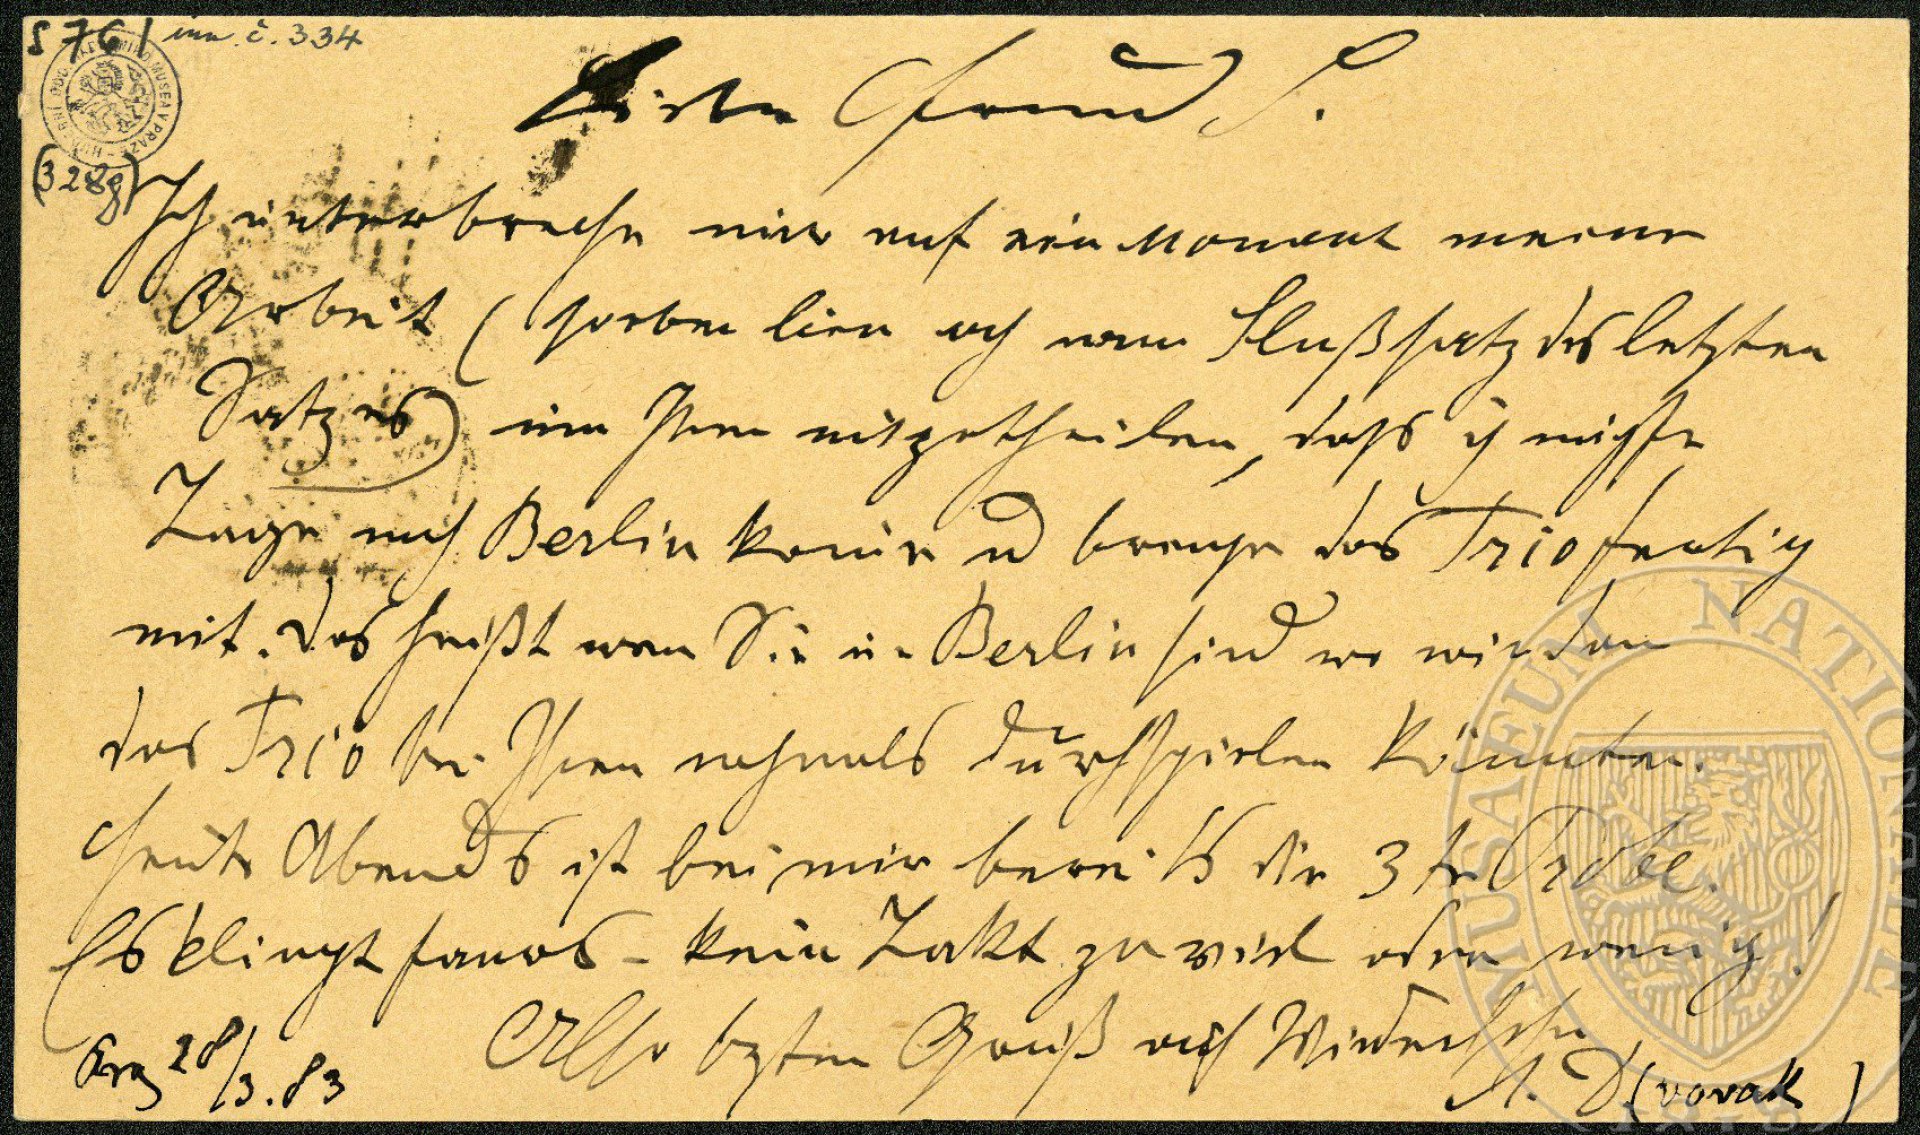 S 76 / inv. č. 334
(328g)
Lieber Freund S.
Ich unterbreche nur auf ein Moment meine
Arbeit (soeben bin ich am Slußsatz des letzten
Satzes) um Ihnen mitzutheilen, dass ich nächste
Tage nach Berlin komme und bringe das Trio fertig
mit. Das heißt wenn Sie in Berlin sind wo wir dann
das Trio bei Ihnen nochmals durchspielen könnten.
Heute Abends ist bei mir bereits die 3te Probe.
Es klingt famos – kein Takt zu viel oder wenig!
Also besten Gruß auf Wiedersehen
Prag 28/3.83
A. D(vorak)
MUSAEUM NATIONALE